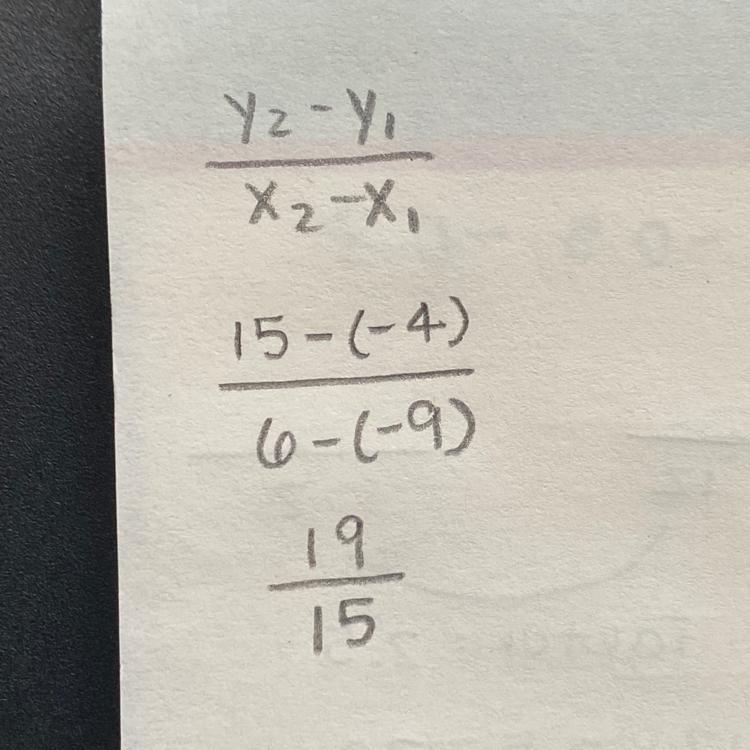 y₂ - y₁
x₂ - x₁
15 - (-4)
6 - (-9)
19
15